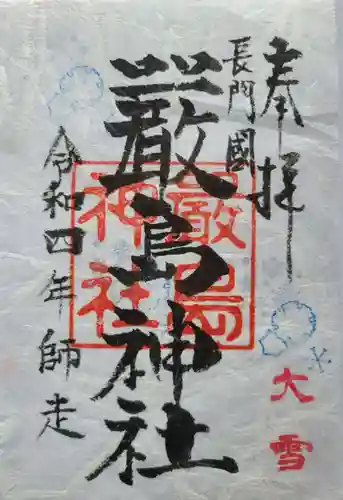 奉拝
長門國
厳島神社
厳島神社
令和四年師走
大雪